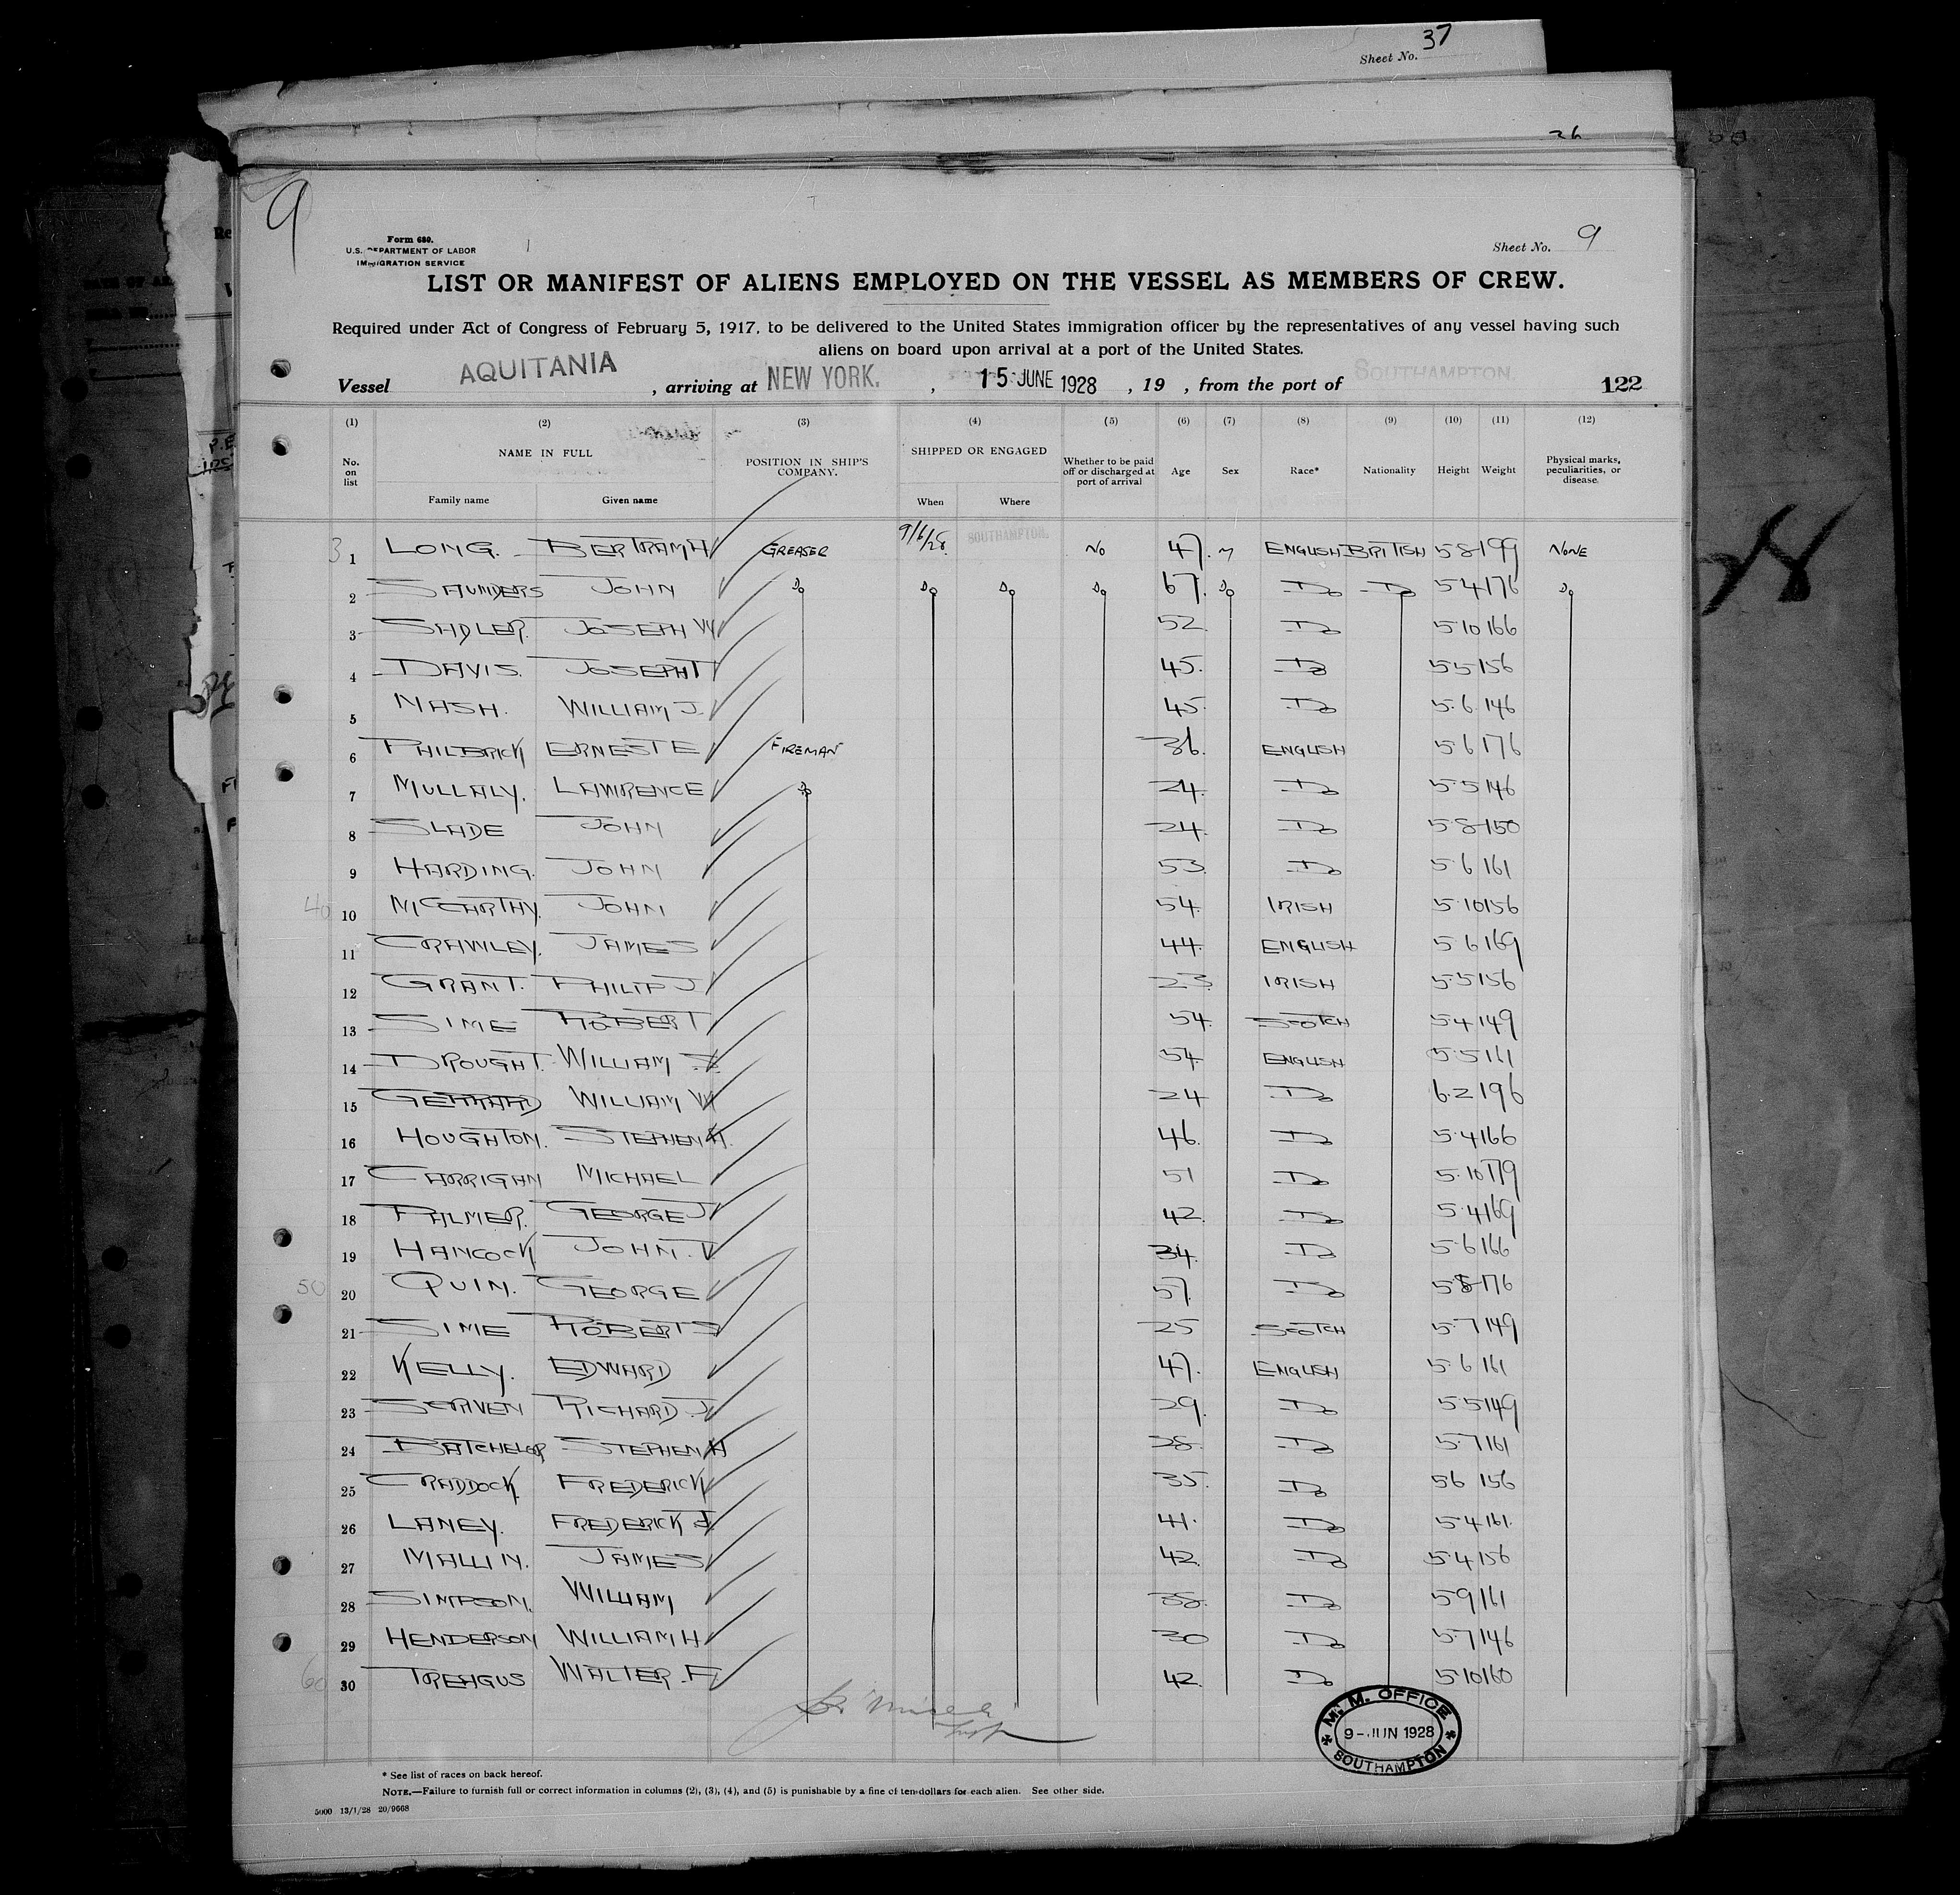 Sheet No. 37
26
9
Form 680.
U.S. DEPARTMENT OF LABOR
IMMIGRATION SERVICE
Sheet No. 9
LIST OR MANIFEST OF ALIENS EMPLOYED ON THE VESSEL AS MEMBERS OF CREW.
Required under Act of Congress of February 5, 1917, to be delivered to the United States immigration officer by the representatives of any vessel having such
aliens on board upon arrival at a port of the United States.
Vessel AQUITANIA, arriving at NEW YORK. , 15 JUNE 1928 , 19 , from the port of SOUTHAMPTON. 122
(1) (2) (3) (4) (5) (6) (7) (8) (9) (10) (11) (12)
No. on list NAME IN FULL Family name Given name POSITION IN SHIP'S COMPANY. SHIPPED OR ENGAGED When Where Whether to be paid off or discharged at port of arrival Age Sex Race* Nationality Height Weight Physical marks, peculiarities, or disease.
1 LONG. BERTRAM H GREASER 9/6/28. SOUTHAMPTON. NO 47. M ENGLISH BRITISH 5 8 199 NONE
2 SAUNDERS JOHN Do Do Do Do 67. Do Do Do 5 4 176 Do
3 SADLER. JOSEPH W 52 Do 5 10 166
4 DAVIS. JOSEPH T 45. Do 5 5 156
5 NASH. WILLIAM J. 45. Do 5.6 146
6 PHILBRICK ERNEST E FIREMAN 36. ENGLISH 5 6 176
7 MULLALY. LAWRENCE Do 24. Do 5.5 146
8 SLADE JOHN 24. Do 5.8 150
9 HARDING. JOHN 53. Do 5.6 161
40 10 McCARTHY. JOHN 54. IRISH 5.10 156
11 CRAWLEY. JAMES 44. ENGLISH 5 6 169
12 GRANT. PHILIP J 23. IRISH 5.5 156
13 SIME ROBERT 54. SCOTCH 5.4 149
14 DROUGHT. WILLIAM J. 54. ENGLISH 5.5 161
15 WILLIAM W 24 Do 6.2 196
16 HOUGHTON. STEPHEN H. 46. Do 5.4 166
17 CARRIGAN MICHAEL 51 Do 5.10 179
18 PALMER. GEORGE J 42. Do 5.4 169
19 HANCOCK JOHN. T. 34. Do 5.6 166
50 20 QUIN. GEORGE 57. Do 5.8 176
21 SIME ROBERT S 25 SCOTCH 5.7 149
22 KELLY. EDWARD 47. ENGLISH 5.6 161
23 SCRIVEN RICHARD. J. 29. Do 5 5 149
24 BATCHELOR STEPHEN H 28. Do 5.7 161
25 CRADDOCK FREDERICK 35. Do 5 6 156
26 LANEY. FREDERICK J. 41. Do 5 4 161.
27 MALLIN. JAMES 42. Do 5.4 156
28 SIMPSON. WILLIAM 38. Do 5.9 161
29 HENDERSON WILLIAM H 30 Do 5.7 146
60 30 TREAGUS WALTER. F 42. Do 5.10 160
M.M. OFFICE
9-JUN 1928
SOUTHAMPTON
* See list of races on back hereof.
NOTE.—Failure to furnish full or correct information in columns (2), (3), (4), and (5) is punishable by a fine of ten dollars for each alien. See other side.
5000 13/1/28 20/9668